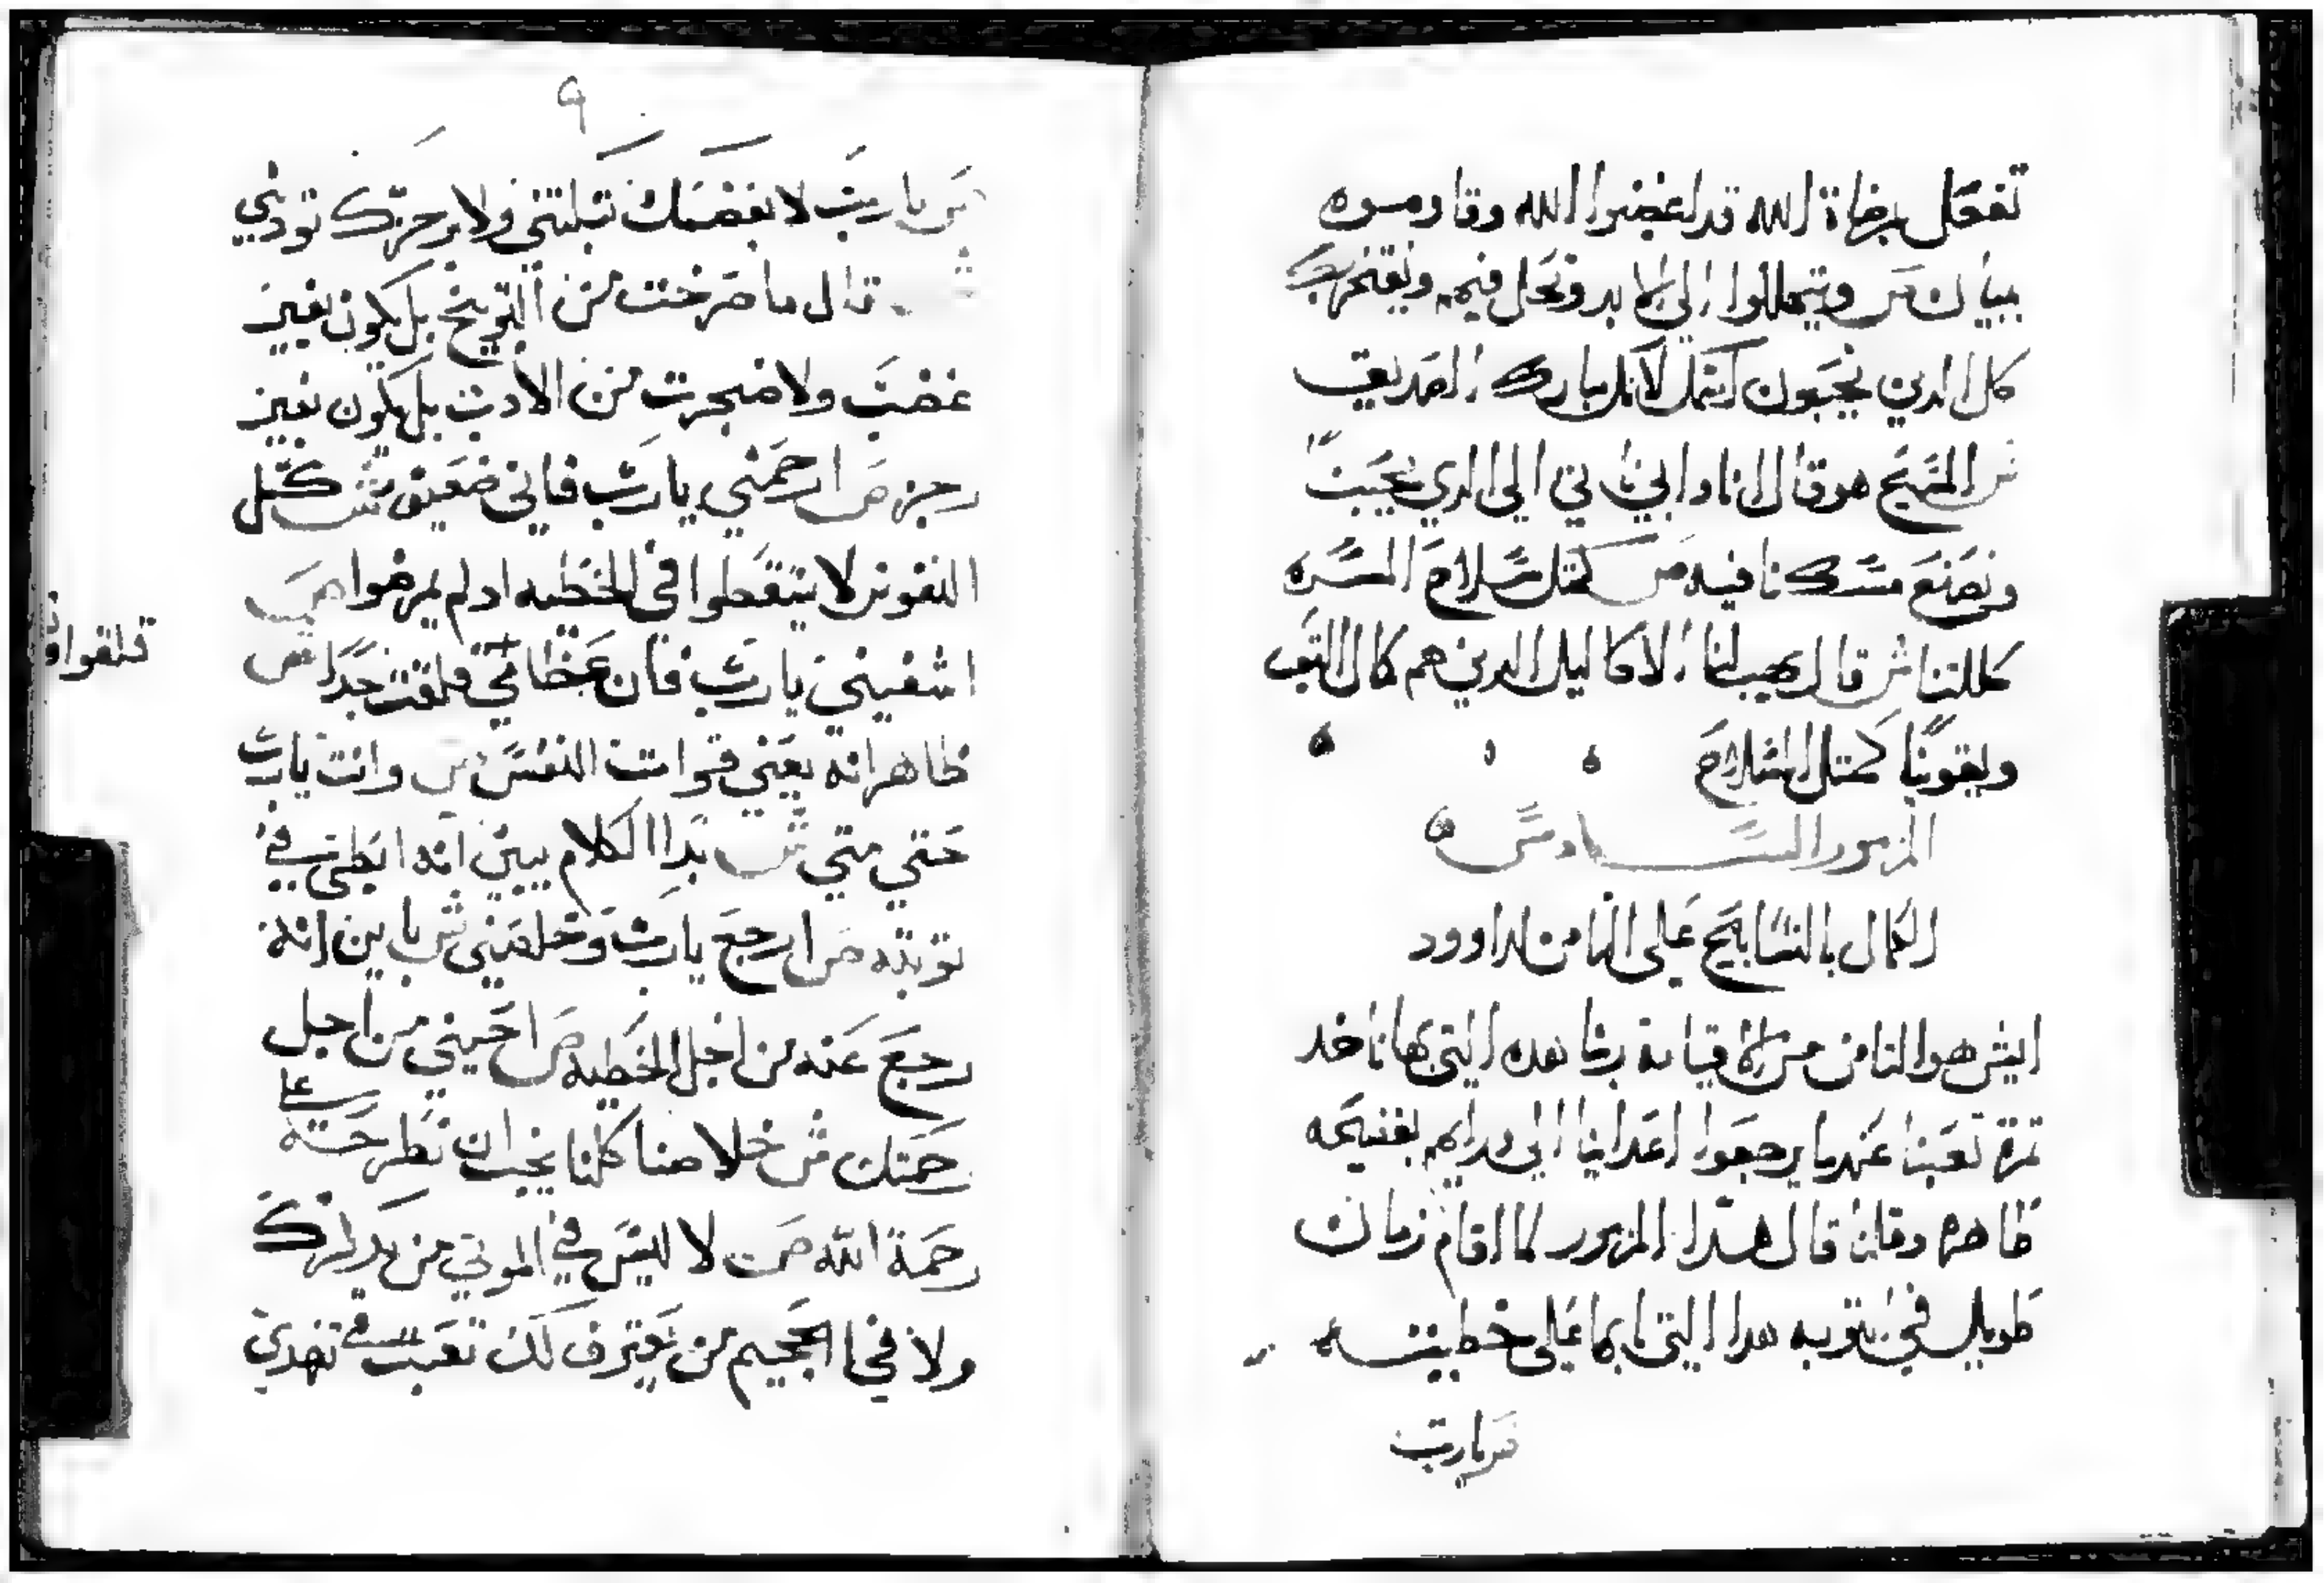 تفعل برضاة الله قد اغضبوا الله وقاوموه
ويتهللوا الي الابد وتحل فيهم ويفتخر بك
كل الدين يحبون اسمك لانك تبارك الصديق
المسيح هو قال انا وابي ناتي الي الدي يحبنا
ونصنع مسكنا فيه ص كمتل سلاح المسره
كللتنا ش قال يهب لنا الاكاليل الدين هم كمال التعب
ويقوينا كمتل السلاح
المزمور السادس
الكمال بالتسابيح علي التامن لداوود
ايش هوا التامن من القيامه رضا هده التي بها ناخد
تمرة تعبنا عندما يرجعوا اعداينا الي وراهم بفضيحه
ظاهره وقان قال هدا المزمور لما اقام زمان
طويل في توبه هدا التي تابها علي خطيته
ص يارب
٩
ص يارب لا بغضبك تبكتني ولا برجزك تودبني
قال ما صرخت من التوبيخ بل يكون بغير
غضب ولا ضجرت من الادب بل يكون بغير
رجز ص ارحمني يارب فاني ضعيف ش كل
النفوس لا يسقطوا في الخطيه اد لم يمرضوا ص
اشفيني يارب فان عظامي قلقت جدا ص
قلقوا
ظاهر انه يعني قوات النفس ص وانت يارب
حتي متي ش بدا الكلام يبين انه ابطي في
توبته ص ارجع يارب وخلصني ش باين انه
رجع عنه من اجل الخطيه ص احييني من اجل
رحمتك ش خلاصنا كلنا يجب ان نطرحه علي
رحمة الله ص لا ليس في الموتي من يدكرك
ولا في الجحيم من يعترف لك تعبت في تنهدي